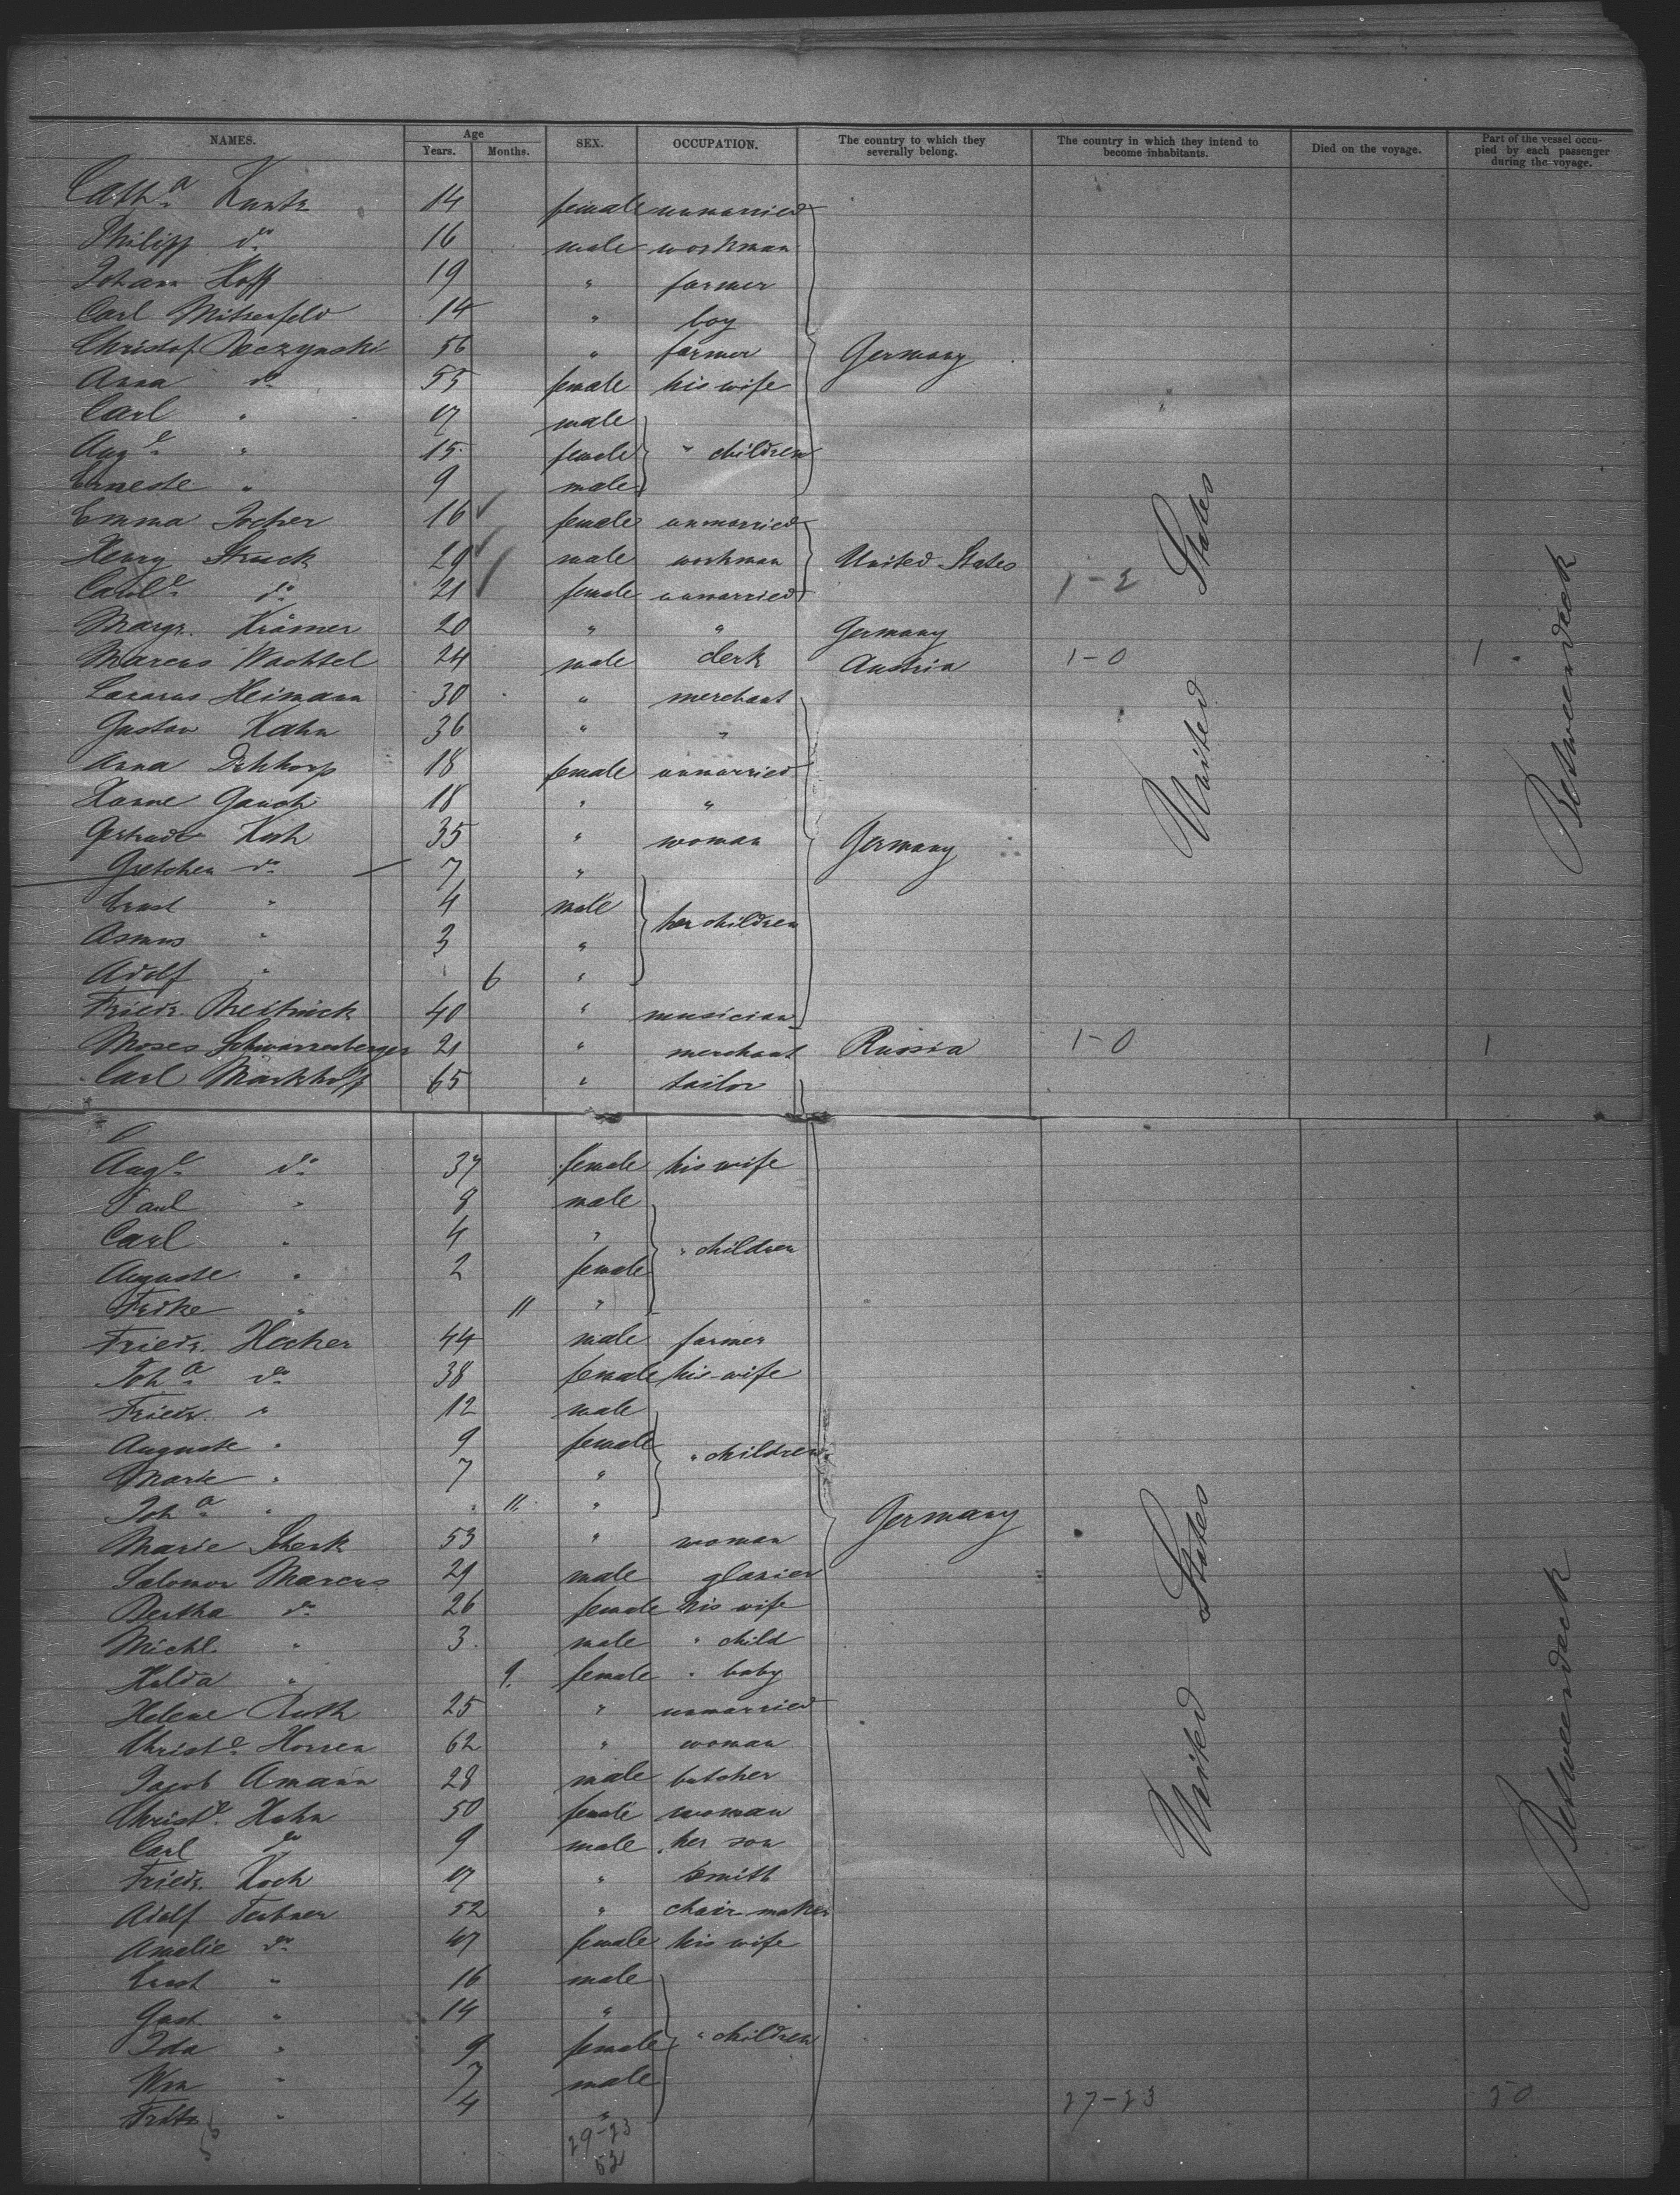 NAMES. Age Years. Months. SEX. OCCUPATION. The country to which they severally belong. The country in which they intend to become inhabitants. Died on the voyage. Part of the vessel occupied by each passenger during the voyage.
Cath.a Kuntz 14 female unmarried
Philipp do 16 male workman
Johann Hoff 19 " farmer
Carl Mitzenfeld 14 " boy
Christof 56 " farmer Germany
Anna do 55 female his wife
Carl " 17 male
Aug.e " 15 female " children
Erneste " 9 male
Emma Jocher 16 female unmarried
Henry Struck 29 male workman United States
Carol.e do 21 female unmarried 1-2
Margr. Krämer 20 " " Germany
Marcus Wachtel 24 male clerk Austria 1-0 1
Lazarus Heimann 30 " merchant
Gustav Kahn 36 " "
Anna 18 female unmarried
Hanne 18 " "
Gertrude Koch 35 " woman Germany
Gretchen do 7 "
Ernst " 4 male her children
Asmus " 3 "
Adolf " 6 "
Friedr. 40 " musician
Moses Schwarzenberger 21 " merchant Russia 1-0 1
Carl Markhoff 65 " tailor
United States
Betweendeck
Aug.e do 37 female his wife
Paul " 8 male
Carl " 4 " " children
Auguste " 2 female
Frike " 11 "
Friedr. Hecker 44 male farmer
Joh.a do 38 female his wife
Friedr. " 12 male
Auguste " 9 female " children
Marie " 7 "
Joh.a " 11 " Germany
Marie Scherk 53 " woman
Salomon Marcus 29 male glazier
Bertha do 26 female his wife
Michl. " 3 male " child
Hulda " 9 female " baby
Helene Ruth 25 " unmarried
Christ.e Hansen 62 " woman
Jacob Amann 28 male butcher
Christ.e Hahn 50 female woman
Carl do 9 male her son
Friedr. Koch 17 " smith
Adolf 52 " chair maker
Amalie do 47 female his wife
Ernst " 16 male
Gust " 14 "
Ida " 9 female " children
Wm " 7 male
Fritz " 4 " 27-23 50
29-23
52
United States
Betweendeck